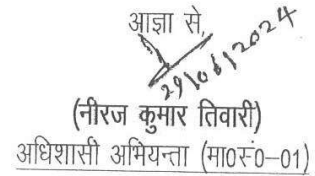 आज्ञा से,
29/06/2024
(नीरज कुमार तिवारी)
अधिशासी अभियन्ता (मा0सं0–01)